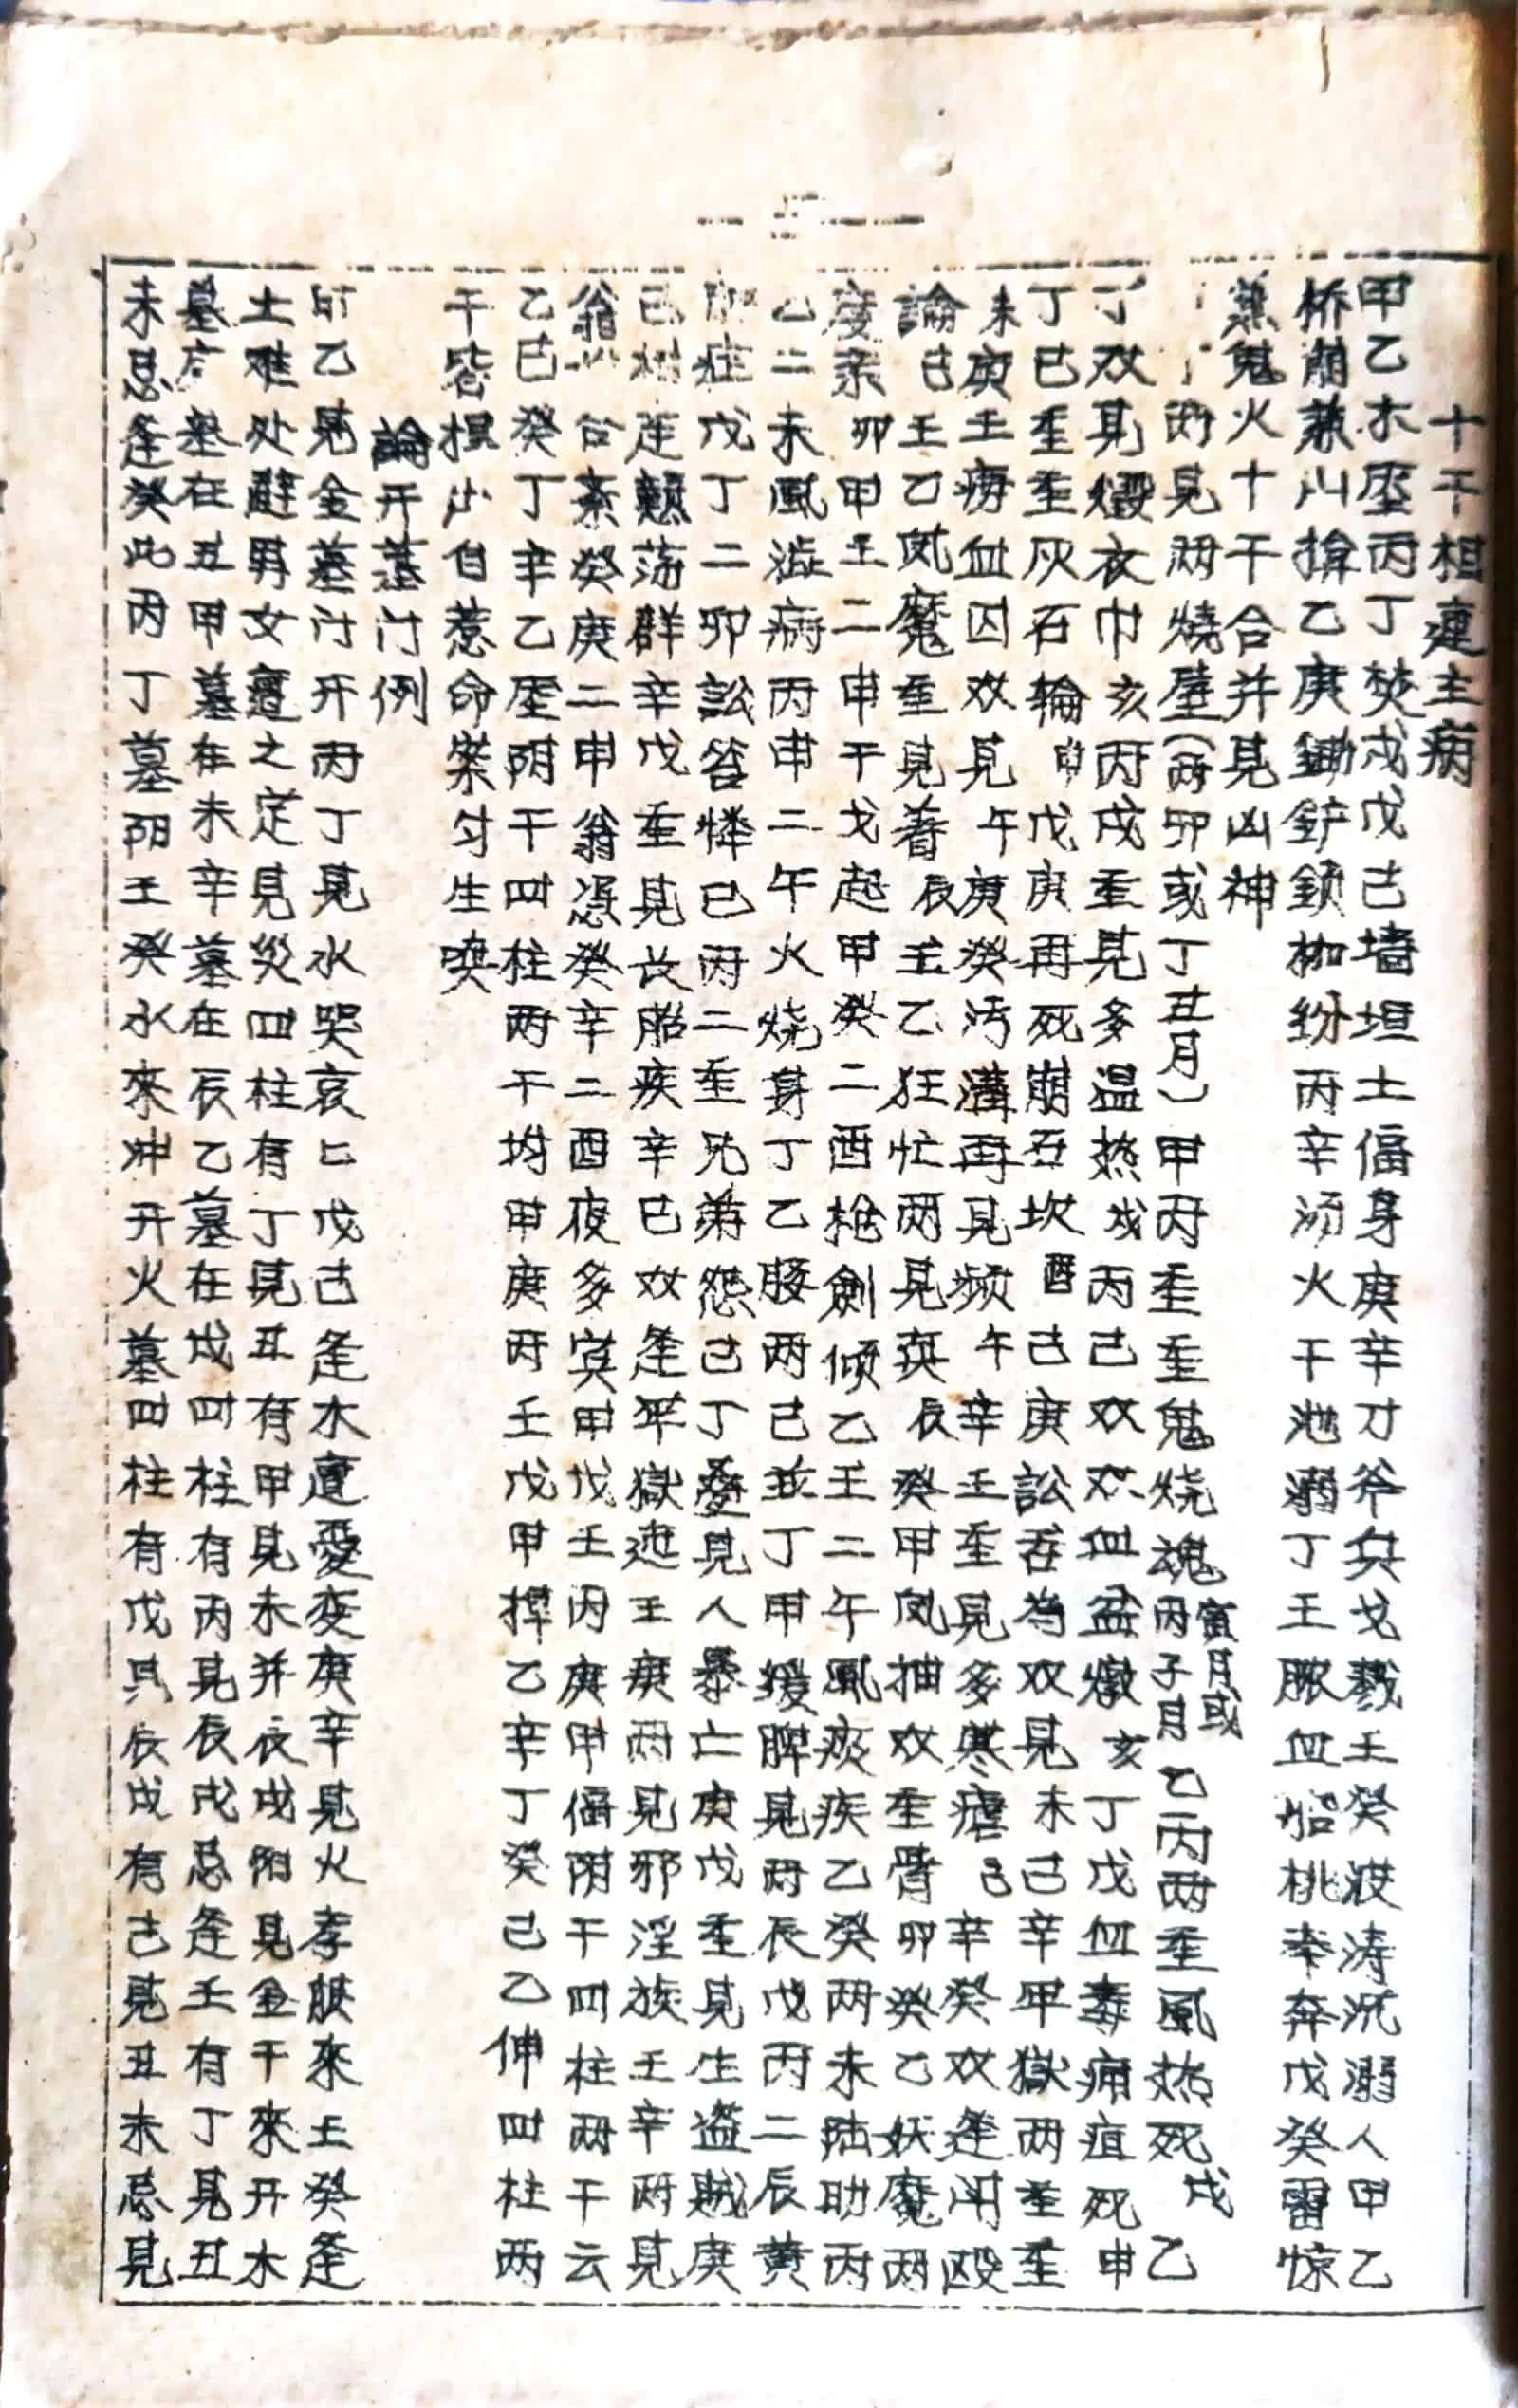 十干相連主病
甲乙木壓丙丁焚戍戊己墙垣土偪身庚辛刀斧兵戈戮壬癸波涛沉溺人甲乙
桥崩兼山揜乙庚鋤鏟鎖枷纷丙辛汤火干池溺丁壬脓血船桃奔戊癸雷惊
兼鬼火十干合并見凶神
两見两燒壁(两卯或丁丑月)甲丙重重鬼烧魂寅月或丙子月乙丙两重風热死戌乙
丁双見煅衣巾亥丙戍重見多温热戍丙己双双血盆燉亥丁戊血毒痈疽死申
丁巳重重灰石輪申戊庚再死崩丑坎酉己庚訟吞为双見未己辛牢獄两重重
未庚壬痨血囚双見午庚癸污溝再見频午辛壬重見多寒瘧己辛癸双逢闲殴
論己壬乙风魔重見着辰壬乙狂忙两見真辰癸甲风抽双重腎卯癸乙妖魔两
慶亲卯甲壬二申干戈起甲癸二酉槍劍傾乙壬二午風痰疾乙癸两未陆助丙
乙二未風澁病丙申二午火烧身丁乙膝两己並丁甲援脾見两辰戊丙二辰黄
症戊丁二卯訟笞惨已丙二重兄弟怨己丁叠見人暴亡庚戊重見生盗賊庚
己連顛荡群辛戊重見长胎疾辛巳双逢牢獄迍壬庚两見邪淫族壬辛两見
翁台紊癸庚二申翁憑癸辛二酉夜多寅甲戊壬丙庚甲偪阴干四柱两干云
乙巳癸丁辛乙壓阴干四柱两干均甲庚丙壬戊甲撣乙辛丁癸己乙伸四柱两
干皆損少自惹命案匀生哭
論开墓门例
甲乙見金墓门开丙丁見水哭哀匕戊己逢木遭憂变庚辛見火孝服來壬癸逢
土难处避男女遭之定見災四柱有丁見丑有甲見未并衣戍附見金干來开木
墓庚墓在丑甲墓在未辛墓在辰乙墓在戍四柱有丙見辰戍忌逢壬有丁見丑
未忌逢癸此丙丁墓阴壬癸水來冲开火墓四柱有戊見辰戍有己見丑未忌見